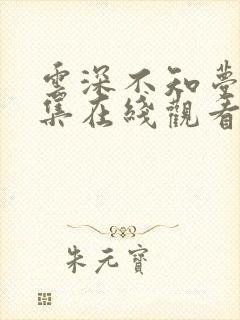 雲深不知夢
集在綫觀看
朱元寶